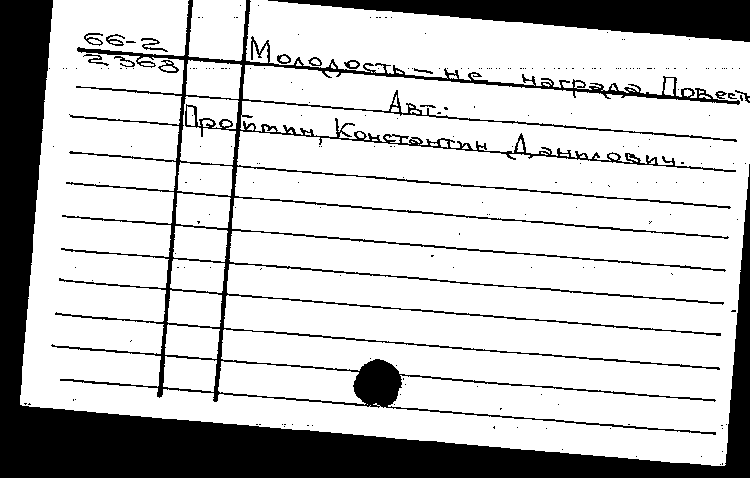 66-2
2368
Молодость – не награда. Повесть
Авт.:
Пройтин, Константин Данилович.